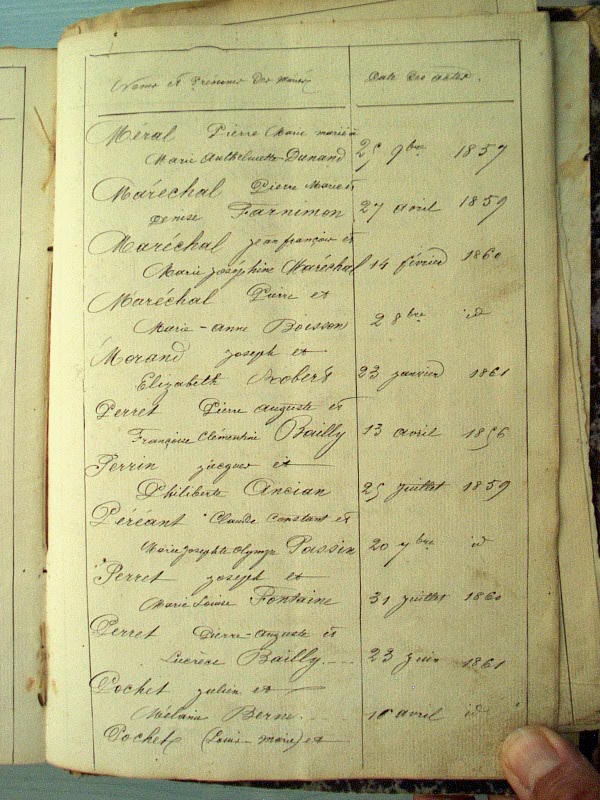 Noms et Prénoms des mariés Date des actes.
Méral Pierre Marie marié à
Marie Anthelmette Dunand 25 9bre 1857
Maréchal Pierre Marie et
Denise Farnimon 27 avril 1859
Maréchal jean françois et
Marie joséphine Maréchal 14 février 1860
Maréchal Pierre et
Marie-anne Boisson 2 8bre id
Morand joseph et
Elizabeth Robert 23 janvier 1861
Perret Pierre auguste et
Françoise Clémentine Bailly 13 avril 1856
Perrin jacques et
Philiberte Ancian 25 juillet 1859
Péréant Claude Constant et
Marie josephte olympe Passin 20 7bre id
Perret joseph et
Marie Louise Fontaine 31 juillet 1860
Perret Pierre-auguste et
Lucrèce Bailly 23 juin 1861
Pochet julien et
Mélanie Berne avril id
Pochet (Louis marie) et